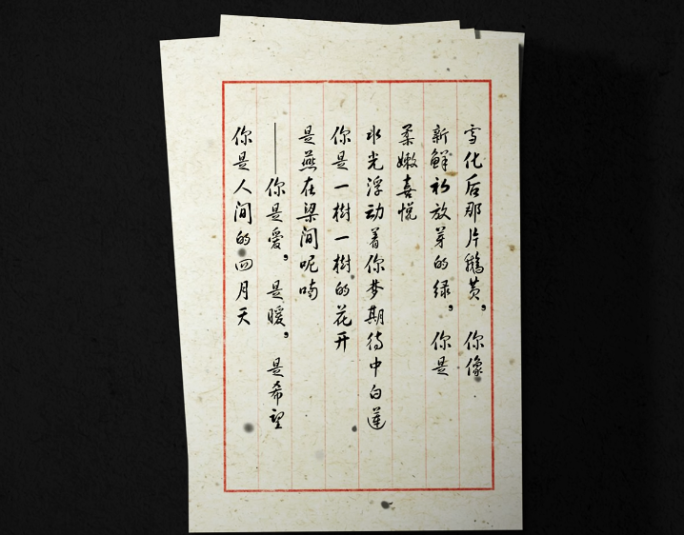 雪化后那片鹅黄，你像
新鲜初放芽的绿，你是
柔嫩喜悦
水光浮动着你梦期待中白莲
你是一樹一樹的花开
是燕在梁间呢喃
——你是爱，是暖，是希望
你是人间的四月天